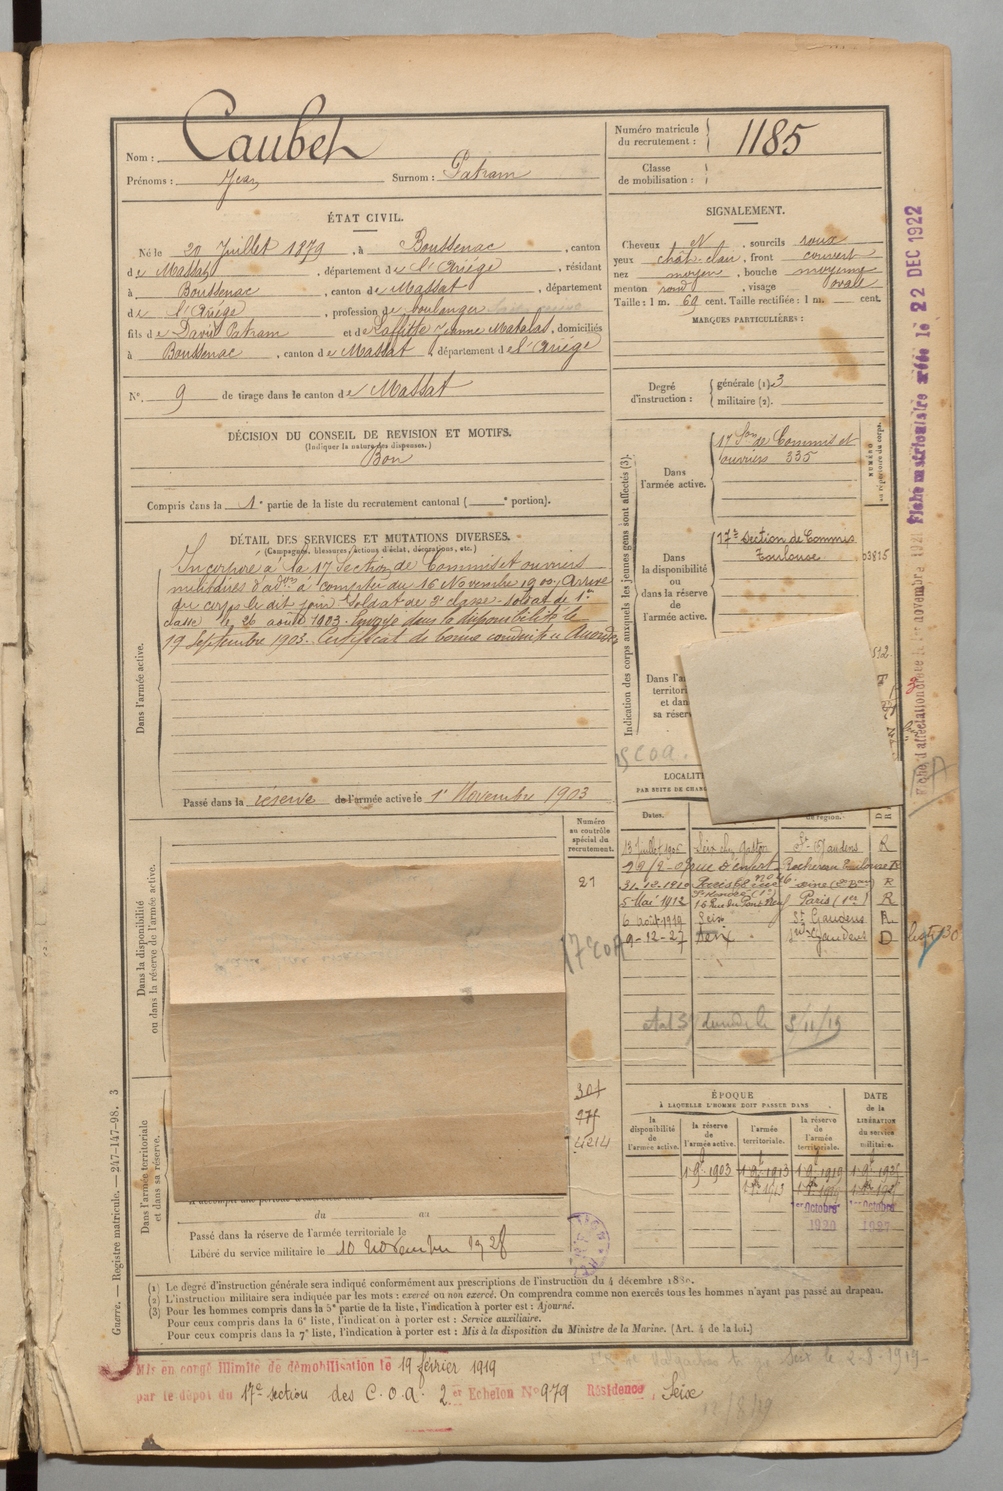 Nom : Caubet
Prénoms : Jean Surnom : Patram
Numéro matricule du recrutement : 1185
Classe de mobilisation :
ÉTAT CIVIL.
Né le 20 Juillet 1879, à Boussenac, canton
de Massat, département de l'Ariége, résidant
à Boussenac, canton de Massat, département
de l'Ariége, profession de boulanger
fils de David Patram et de Laffitte Jeanne Matalas, domiciliés
à Boussenac, canton de Massat, département de l'Ariége
N° 9 de tirage dans le canton de Massat
DÉCISION DU CONSEIL DE REVISION ET MOTIFS.
(Indiquer la nature des dispenses.)
Bon
Compris dans la 1e partie de la liste du recrutement cantonal ( e portion).
SIGNALEMENT.
Cheveux N, sourcils roux
yeux chât-clair, front couvert
nez moyen, bouche moyenne
menton rond, visage ovale
Taille : 1 m. 69 cent. Taille rectifiée : 1 m. cent.
MARQUES PARTICULIÈRES :
Degré d'instruction : générale (1) 3
militaire (2).
DÉTAIL DES SERVICES ET MUTATIONS DIVERSES.
(Campagnes, blessures, actions d'éclat, décorations, etc.)
Dans l'armée active.
Incorporé à la 17 Section de Commis et ouvriers
militaires d'adon à compter du 16 Novembre 1900. Arrivé
au corps le dit jour. Soldat de 2e classe. Soldat de 1re
classe le 26 août 1903. Envoyé dans la disponibilité le
19 Septembre 1903. Certificat de bonne conduite Accordé
Passé dans la réserve de l'armée active le 1er Novembre 1903
Indication des corps auxquels les jeunes gens sont affectés (3).
Dans l'armée active.
17 Son de Commis et
ouvriers 335
NUMÉRO au répertoire du corps.
Dans la disponibilité ou dans la réserve de l'armée active.
17e Section de Commis
Toulouse 03815
Dans l'a
territori
et dan
sa réserv
LOCALIT
PAR SUITE DE CHANG
Dates.
de région.
13 Juillet 1906 Seix chez Gaston St Gaudens R
22/2-09 rue Denfert Rochereau Toulouse R
31-12-1910 R
5 Mai 1912 16 Rue du Pont Neuf Paris (1er) R
6 août 1919 Seix St Gaudens R
9-12-27 Seix St Gaudens D
Dans la disponibilité ou dans la réserve de l'armée active.
Numéro au contrôle spécial du recrutement.
21
17e COA
5/11/19
Dans l'armée territoriale et dans sa réserve.
304
277
4214
du au
Passé dans la réserve de l'armée territoriale le
Libéré du service militaire le 10 novembre 1928
ÉPOQUE
À LAQUELLE L'HOMME DOIT PASSER DANS
la disponibilité de l'armée active.
la réserve de l'armée active.
l'armée territoriale.
la réserve de l'armée territoriale.
DATE de la LIBÉRATION du service militaire.
1-9-1903 1-9-1913 1-9-1919 1-9-1925
1er Octobre 1920
1927
(1) Le degré d'instruction générale sera indiqué conformément aux prescriptions de l'instruction du 4 décembre 1889.
(2) L'instruction militaire sera indiquée par les mots : exercé ou non exercé. On comprendra comme non exercés tous les hommes n'ayant pas passé au drapeau.
(3) Pour les hommes compris dans la 5e partie de la liste, l'indication à porter est : Ajourné.
Pour ceux compris dans la 6e liste, l'indication à porter est : Service auxiliaire.
Pour ceux compris dans la 7e liste, l'indication à porter est : Mis à la disposition du Ministre de la Marine. (Art. 4 de la loi.)
Guerre. — Registre matricule. — 247-147-98. 3
Mis en congé illimité de démobilisation le 19 février 1919
par le dépôt du 17e section des C.O.A. 2er Echelon N° 979 Résidence, Seix
12/8/19
Fiche matriculaire créée le 22 DEC 1922